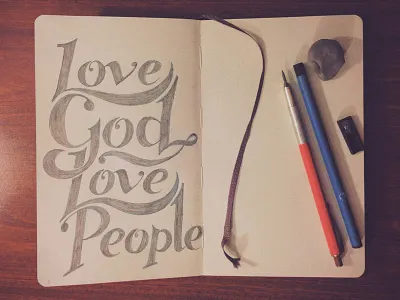 Love
God
Love
People